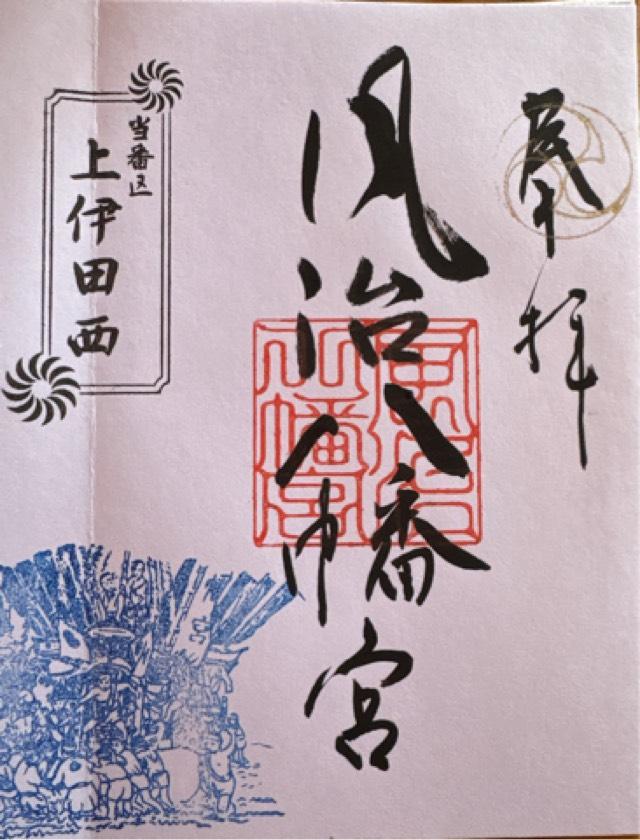 奉拝
風治八幡宮
当番区
上伊田西